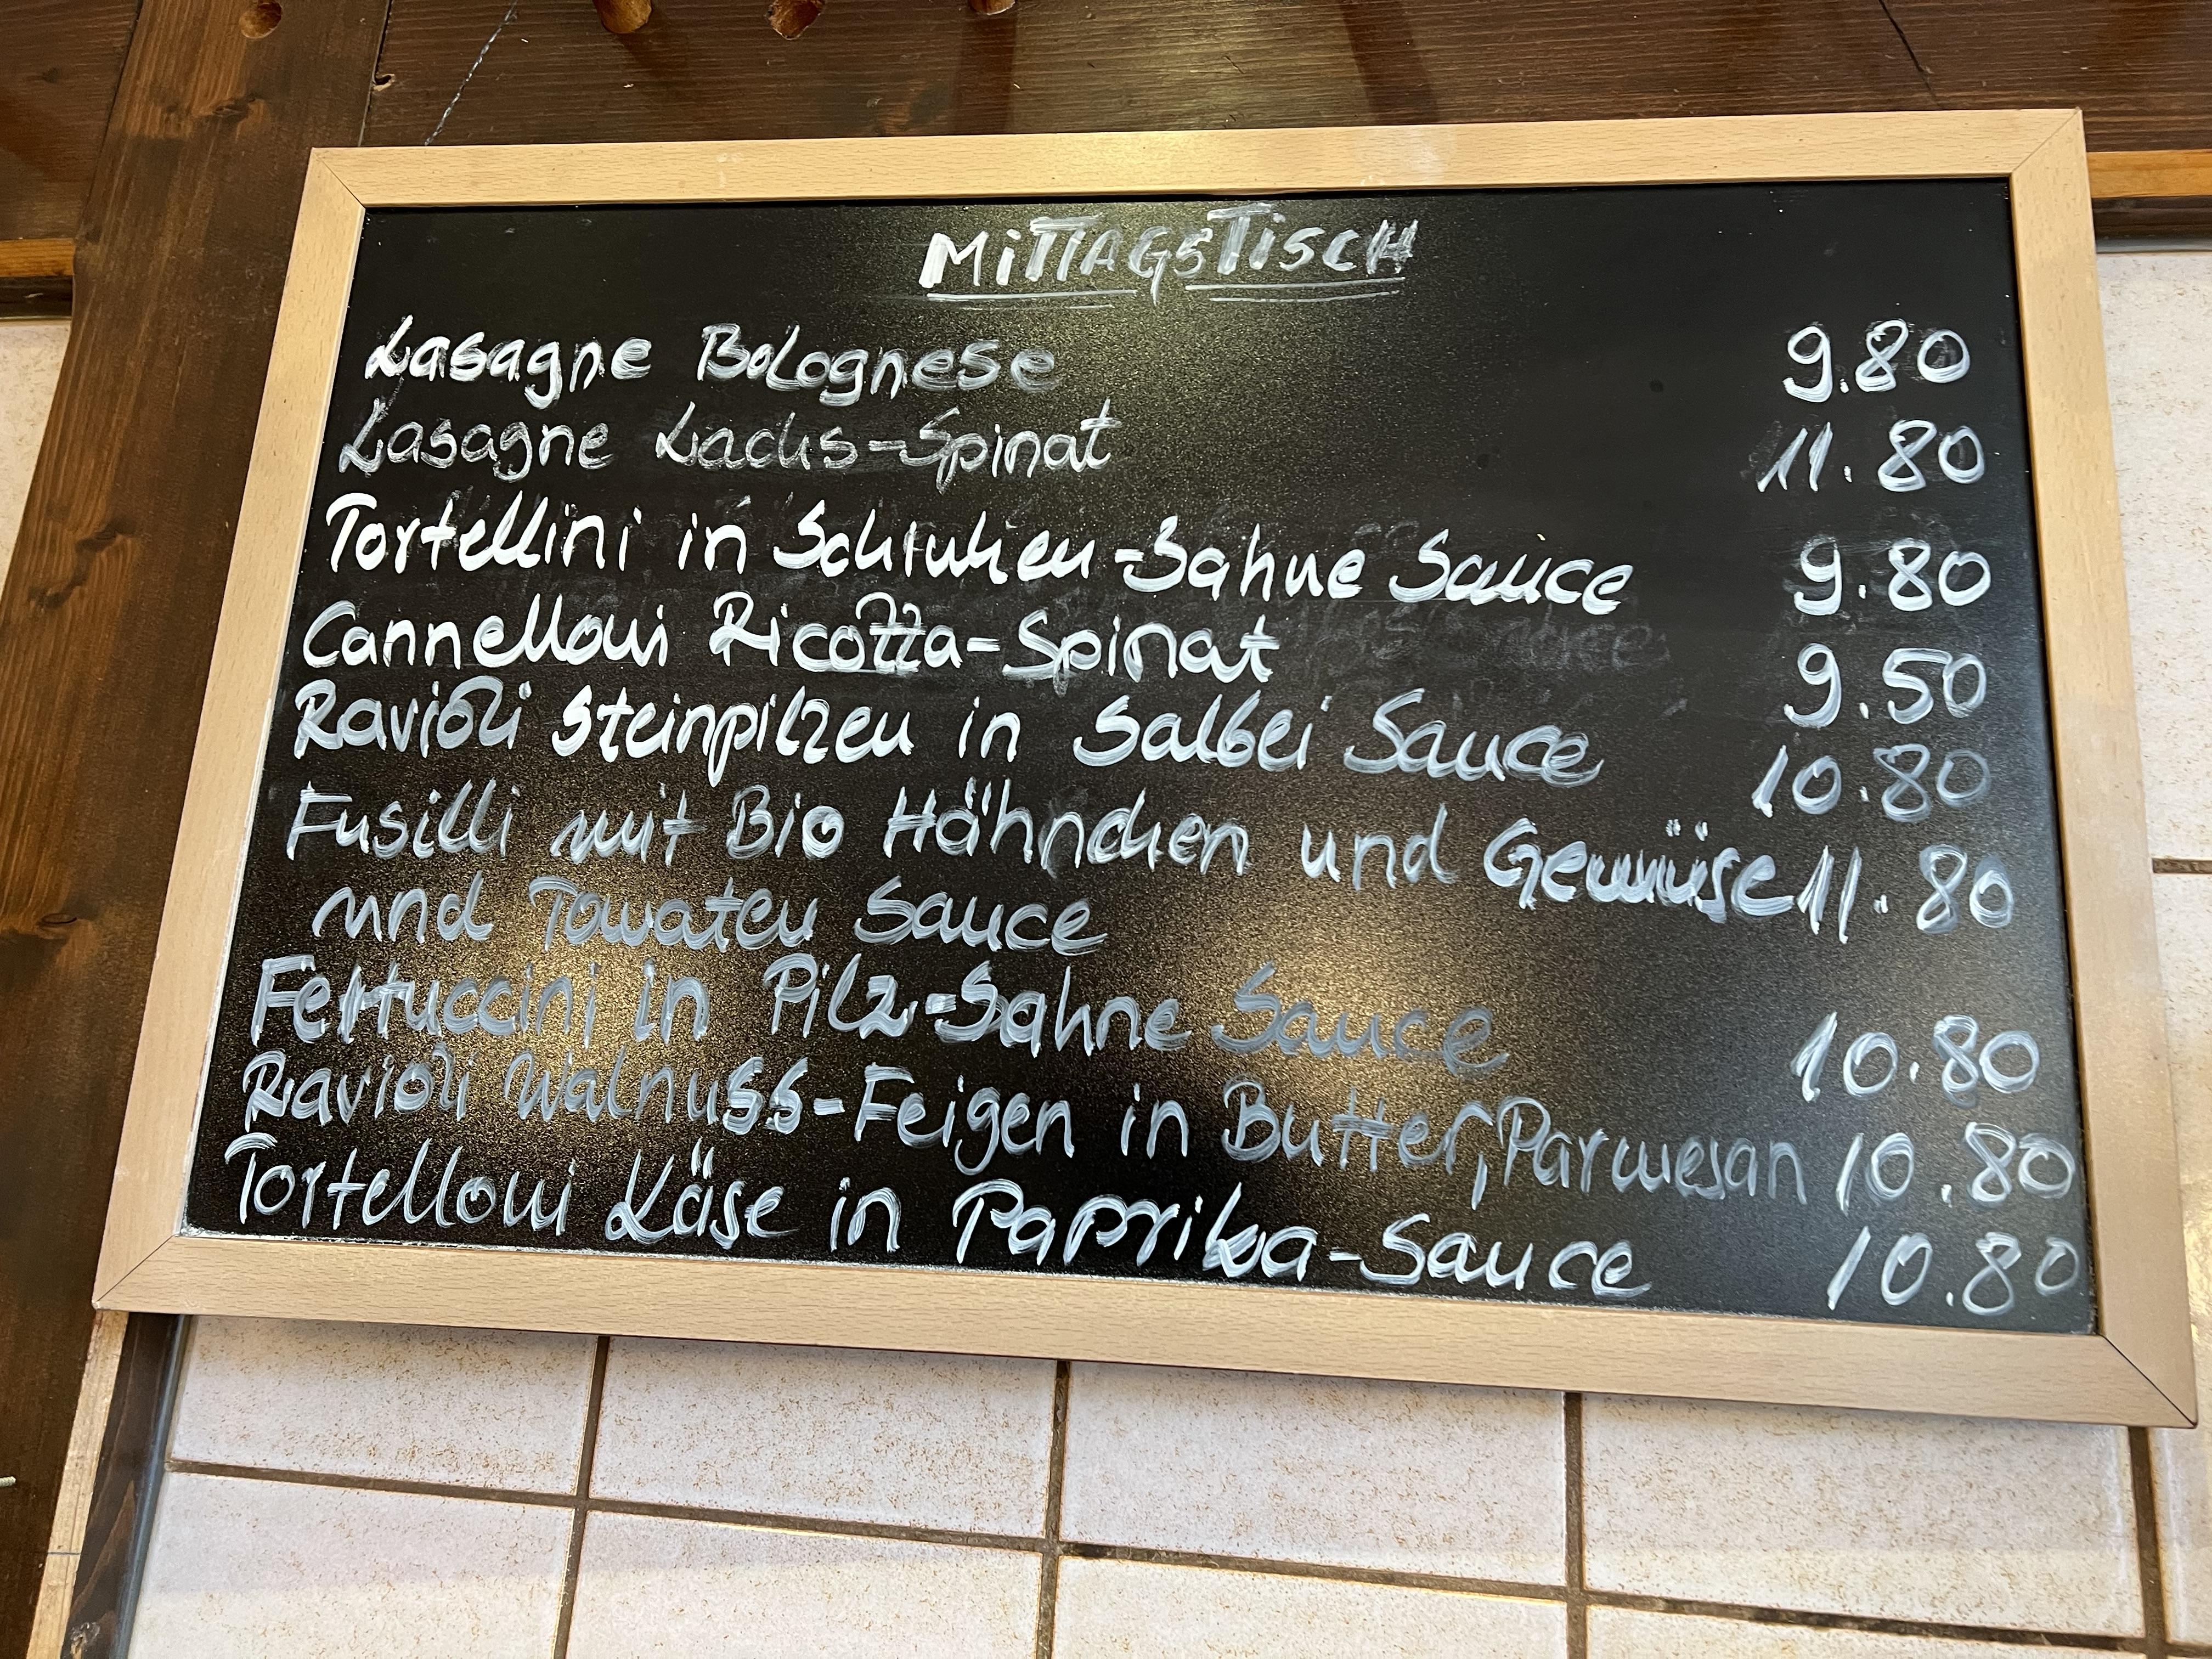 MITTAGSTISCH
Lasagne Bolognese 9.80
Lasagne Lachs-Spinat 11.80
Tortellini in Schinken-Sahne Sauce 9.80
Cannelloni Ricotta-Spinat 9.50
Ravioli Steinpilzen in Salbei Sauce 10.80
Fusilli mit Bio Hähnchen und Gemüse 11.80
und Tomaten Sauce
Fettuccini in Pilz-Sahne Sauce 10.80
Ravioli Walnuss-Feigen in Butter, Parmesan 10.80
Tortelloni Käse in Paprika-Sauce 10.80